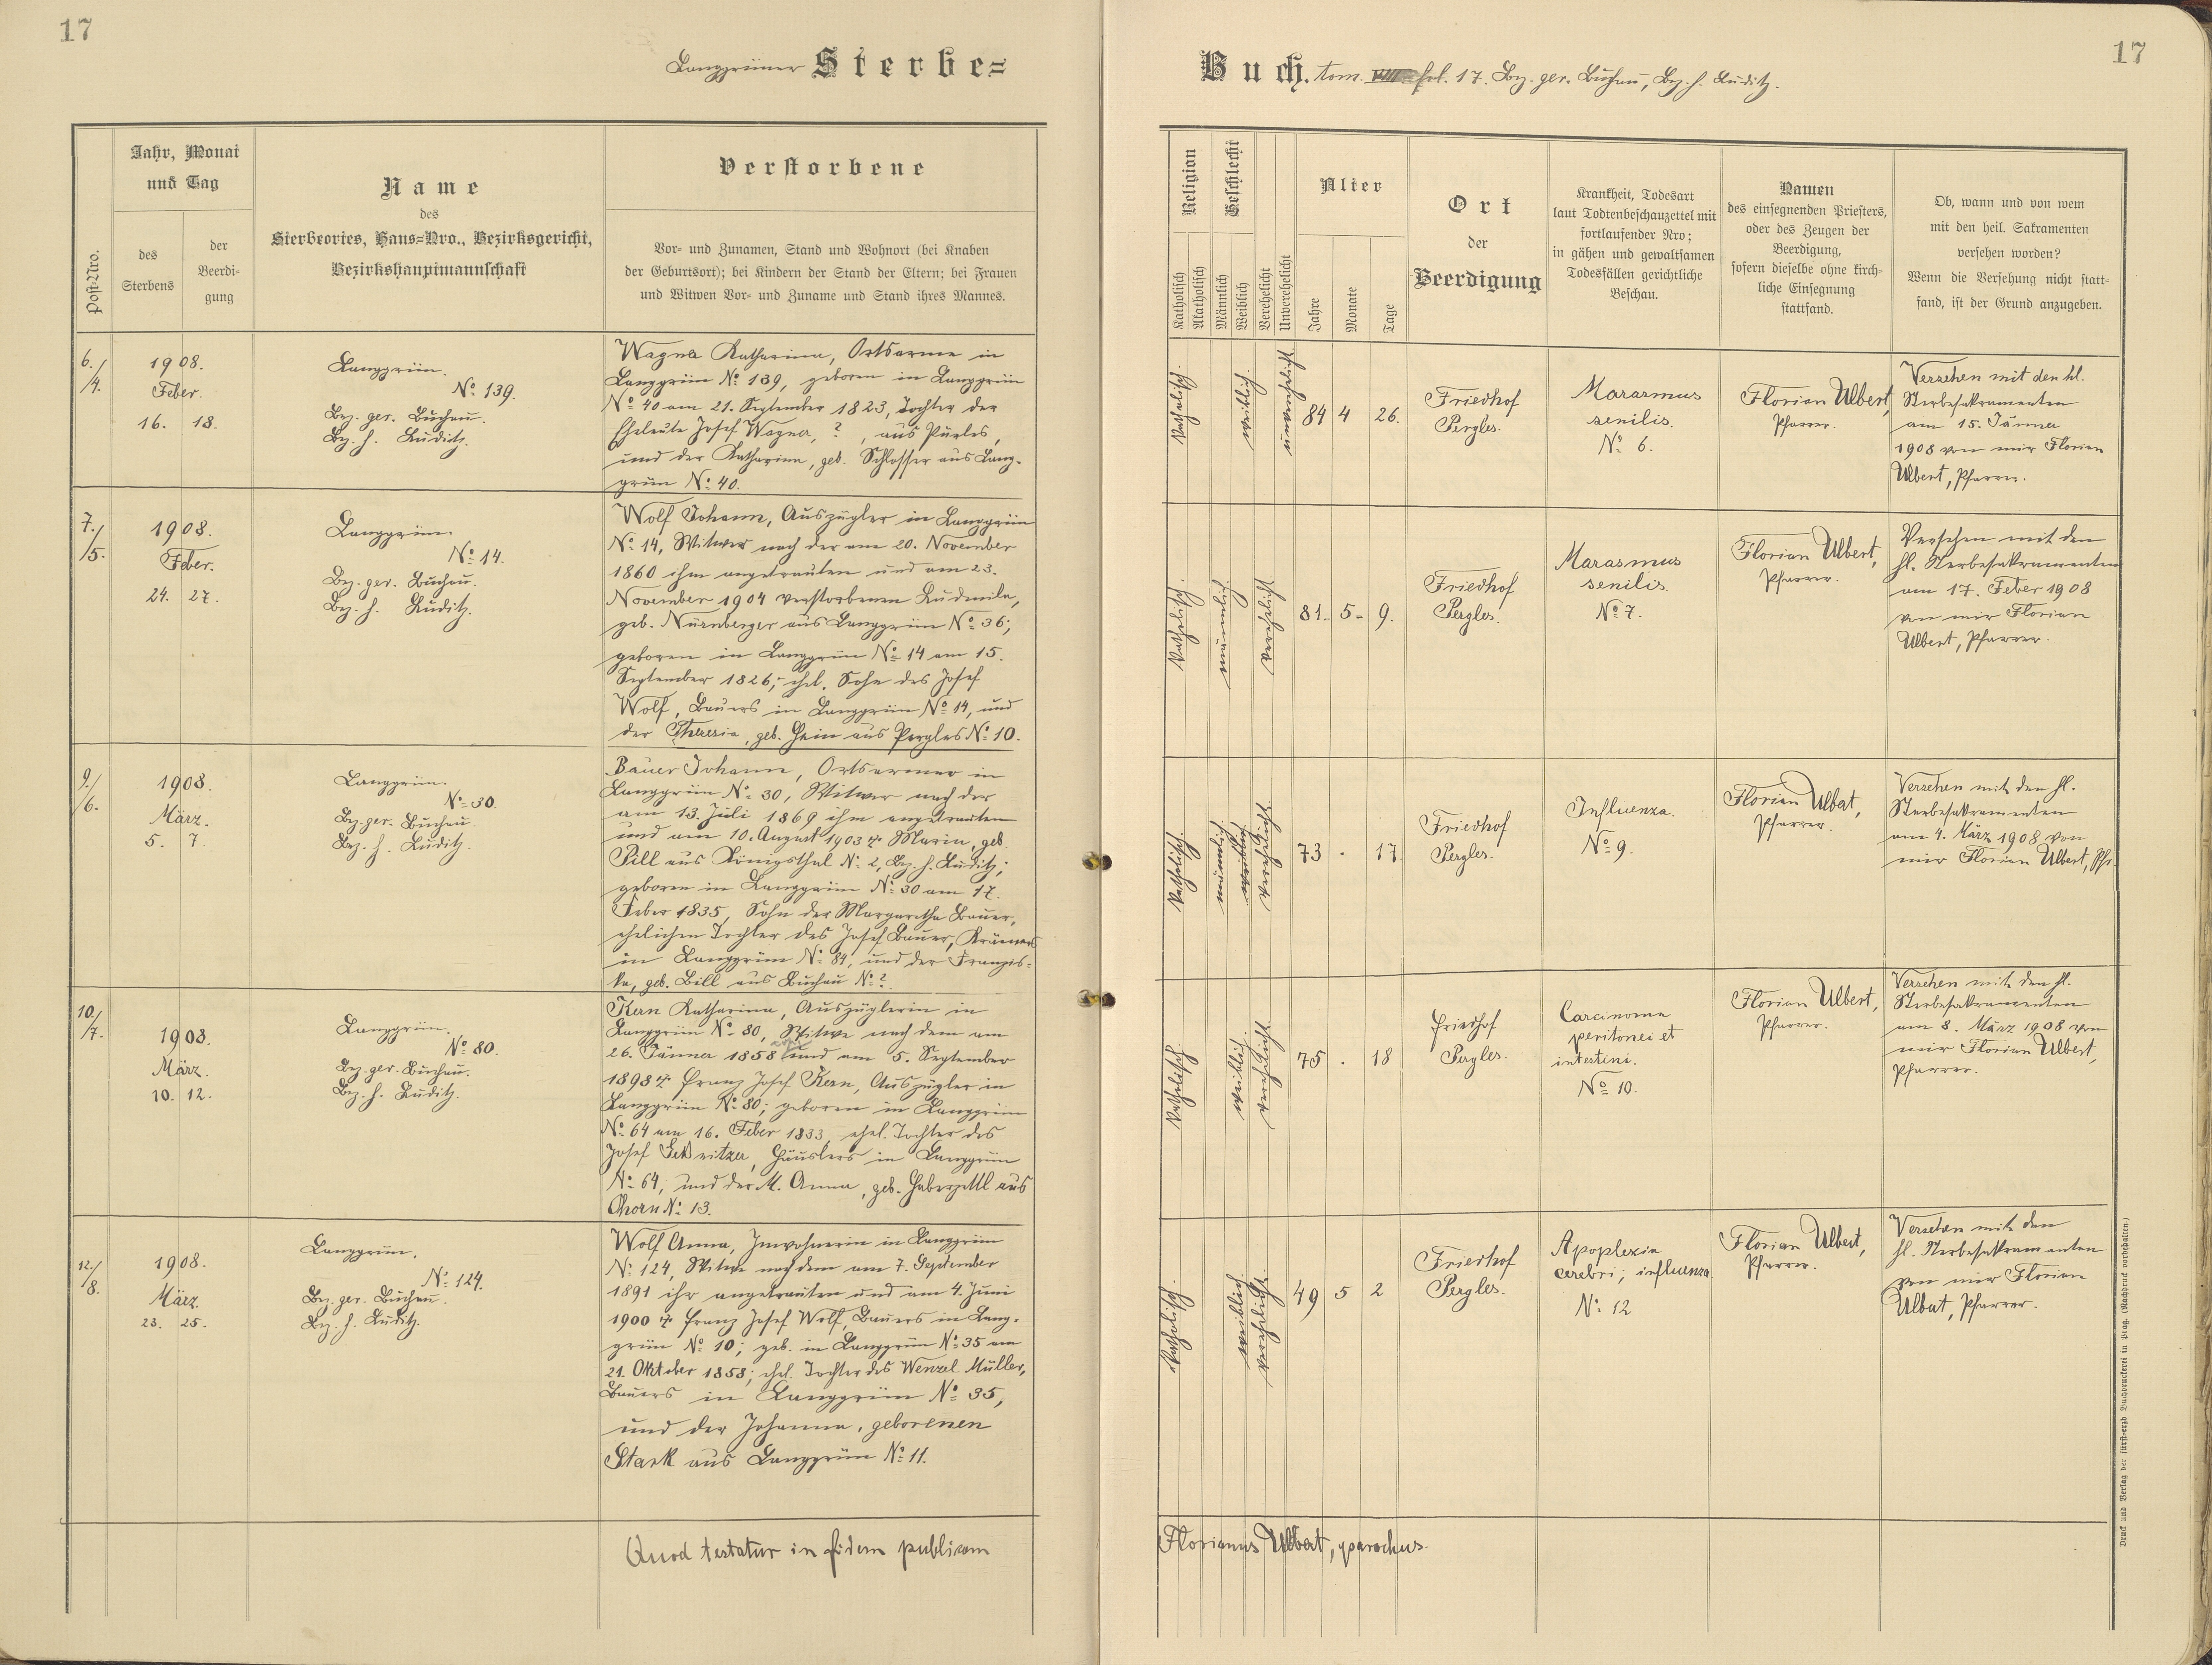 17
Langgrüner Sterbe=
Post-Nro.
Jahr, Monat
und Tag
des
Sterbens
der
Beerdi-
gung
Name
des
Sterbeortes, Haus=Nro., Bezirksgericht,
Bezirkshauptmannschaft
Verstorbene
Vor- und Zunamen, Stand und Wohnort (bei Knaben
der Geburtsort); bei Kindern der Stand der Eltern; bei Frauen
und Witwen Vor- und Zuname und Stand ihres Mannes.
6./4.
1908.
Feber.
16. 18.
Langgrün.
No 139.
Bez. ger. Buchau.
Bez. h. Luditz.
Wagner Katharina, Ortsarme in
Langgrün No 139, geboren in Langgrün
No 40 am 21. September 1823, Tochter der
Eheleute Josef Wagner, ?, aus Purles,
und der Katharina, geb. Schlosser aus Lang-
grün No 40.
7./5.
1908.
Feber.
24. 27.
Langgrün.
No 14.
Bez. ger. Buchau.
Bez. h. Luditz.
Wolf Johann, Auszügler in Langgrün
No 14, Witwer nach der am 20. November
1860 ihm angetrauten und am 23.
November 1904 verstorbenen Ludmila,
geb. Nürnberger aus Langgrün No 36;
geboren in Langgrün No 14 am 15.
September 1826, ehel. Sohn des Josef
Wolf, Bauers in Langgrün No 14, und
der Theresia, geb. Hein aus Pergles No 10.
9./6.
1908.
März.
5. 7.
Langgrün.
No 30.
Bez. ger. Buchau.
Bez. h. Luditz.
Bauer Johann, Ortsarmer in
Langgrün No 30, Witwer nach der
am 13. Juli 1869 ihm angetrauten
und am 10. August 1903 † Maria, geb.
Pill aus Königsthal No 2, Bez. h. Luditz;
geboren in Langgrün No 30 am 17.
Feber 1835, Sohn der Margaretha Bauer,
ehelichen Tochter des Josef Bauer, Krämers
in Langgrün No 84, und der Franzis-
ka, geb. Bill aus Buchau No ?.
10./7.
1908.
März.
10. 12.
Langgrün.
No 80.
Bez. ger. Buchau.
Bez. h. Luditz.
Kern Katharina, Auszüglerin in
Langgrün No 80, Witwe nach dem am
26. Jänner 1858 und am 5. September
1898 † Franz Josef Kern, Auszügler in
Langgrün No 80; geboren in Langgrün
No 64 am 16. Feber 1833, ehel. Tochter des
Josef Häuslers in Langgrün
No 64, und der M. Anna, geb. Haberzettl aus
Chorn No 13.
12./8.
1908.
März.
23. 25.
Langgrün.
No 124.
Bez. ger. Buchau.
Bez. h. Luditz.
Wolf Anna, Inwohnerin in Langgrün
No 124, Witwe nach dem am 7. September
1891 ihr angetrauten und am 4. Juni
1900 † Franz Josef Wolf, Bauers in Lang-
grün No 10; geb. in Langgrün No 35 am
21. Oktober 1858; ehel. Tochter des Wenzel Müller,
Bauers in Langgrün No 35,
und der Johanna, geborenen
Stark aus Langgrün No 11.
Quod testatur in fidem publicam
17
Buch. tom. fol. 17. Bez. ger. Buchau, Bez. h. Luditz.
Religion
Katholisch
Akatholisch
Geschlecht
Männlich
Weiblich
Verehelicht
Unverehelicht
Alter
Jahre
Monate
Tage
Ort
der
Beerdigung
Krankheit, Todesart
laut Todtenbeschauzettel mit
fortlaufender Nro;
in gähen und gewaltsamen
Todesfällen gerichtliche
Beschau.
Namen
des einsegnenden Priesters,
oder des Zeugen der
Beerdigung,
sofern dieselbe ohne kirch-
liche Einsegnung
stattfand.
Ob, wann und von wem
mit den heil. Sakramenten
versehen worden?
Wenn die Versehung nicht statt-
fand, ist der Grund anzugeben.
katholisch.
weiblich.
unverehelicht.
84 4 26.
Friedhof
Pergles.
Marasmus
senilis.
No 6.
Florian Ulbert,
Pfarrer.
Versehen mit den hl.
Sterbesakramenten
am 15. Jänner
1908 von mir Florian
Ulbert, Pfarrer.
katholisch.
männlich.
verehelicht.
81. 5. 9.
Friedhof
Pergles.
Marasmus
senilis.
No 7.
Florian Ulbert,
Pfarrer.
Versehen mit den
hl. Sterbesakramenten
am 17. Feber 1908
von mir Florian
Ulbert, Pfarrer.
katholisch.
männlich.
weiblich.
verehelicht.
73 . 17.
Friedhof
Pergles.
Influenza.
No 9.
Florian Ulbert,
Pfarrer.
Versehen mit den hl.
Sterbesakramenten
am 4. März 1908 von
mir Florian Ulbert, Pfr.
katholisch.
weiblich.
verehelicht.
75 . 18
Friedhof
Pergles.
Carcinoma
peritonei et
intestini.
No 10.
Florian Ulbert,
Pfarrer.
Versehen mit den hl.
Sterbesakramenten
am 8. März 1908 von
mir Florian Ulbert,
Pfarrer.
katholisch.
weiblich.
verehelicht.
49 5 2
Friedhof
Pergles.
Apoplexia
cerebri; influenza.
No 12
Florian Ulbert,
Pfarrer.
Versehen mit den
hl. Sterbesakramenten
von mir Florian
Ulbert, Pfarrer.
Florianus Ulbert, parochus.
Druck und Verlag der fürst-erzb. Buchdruckerei in Prag. (Nachdruck vorbehalten.)